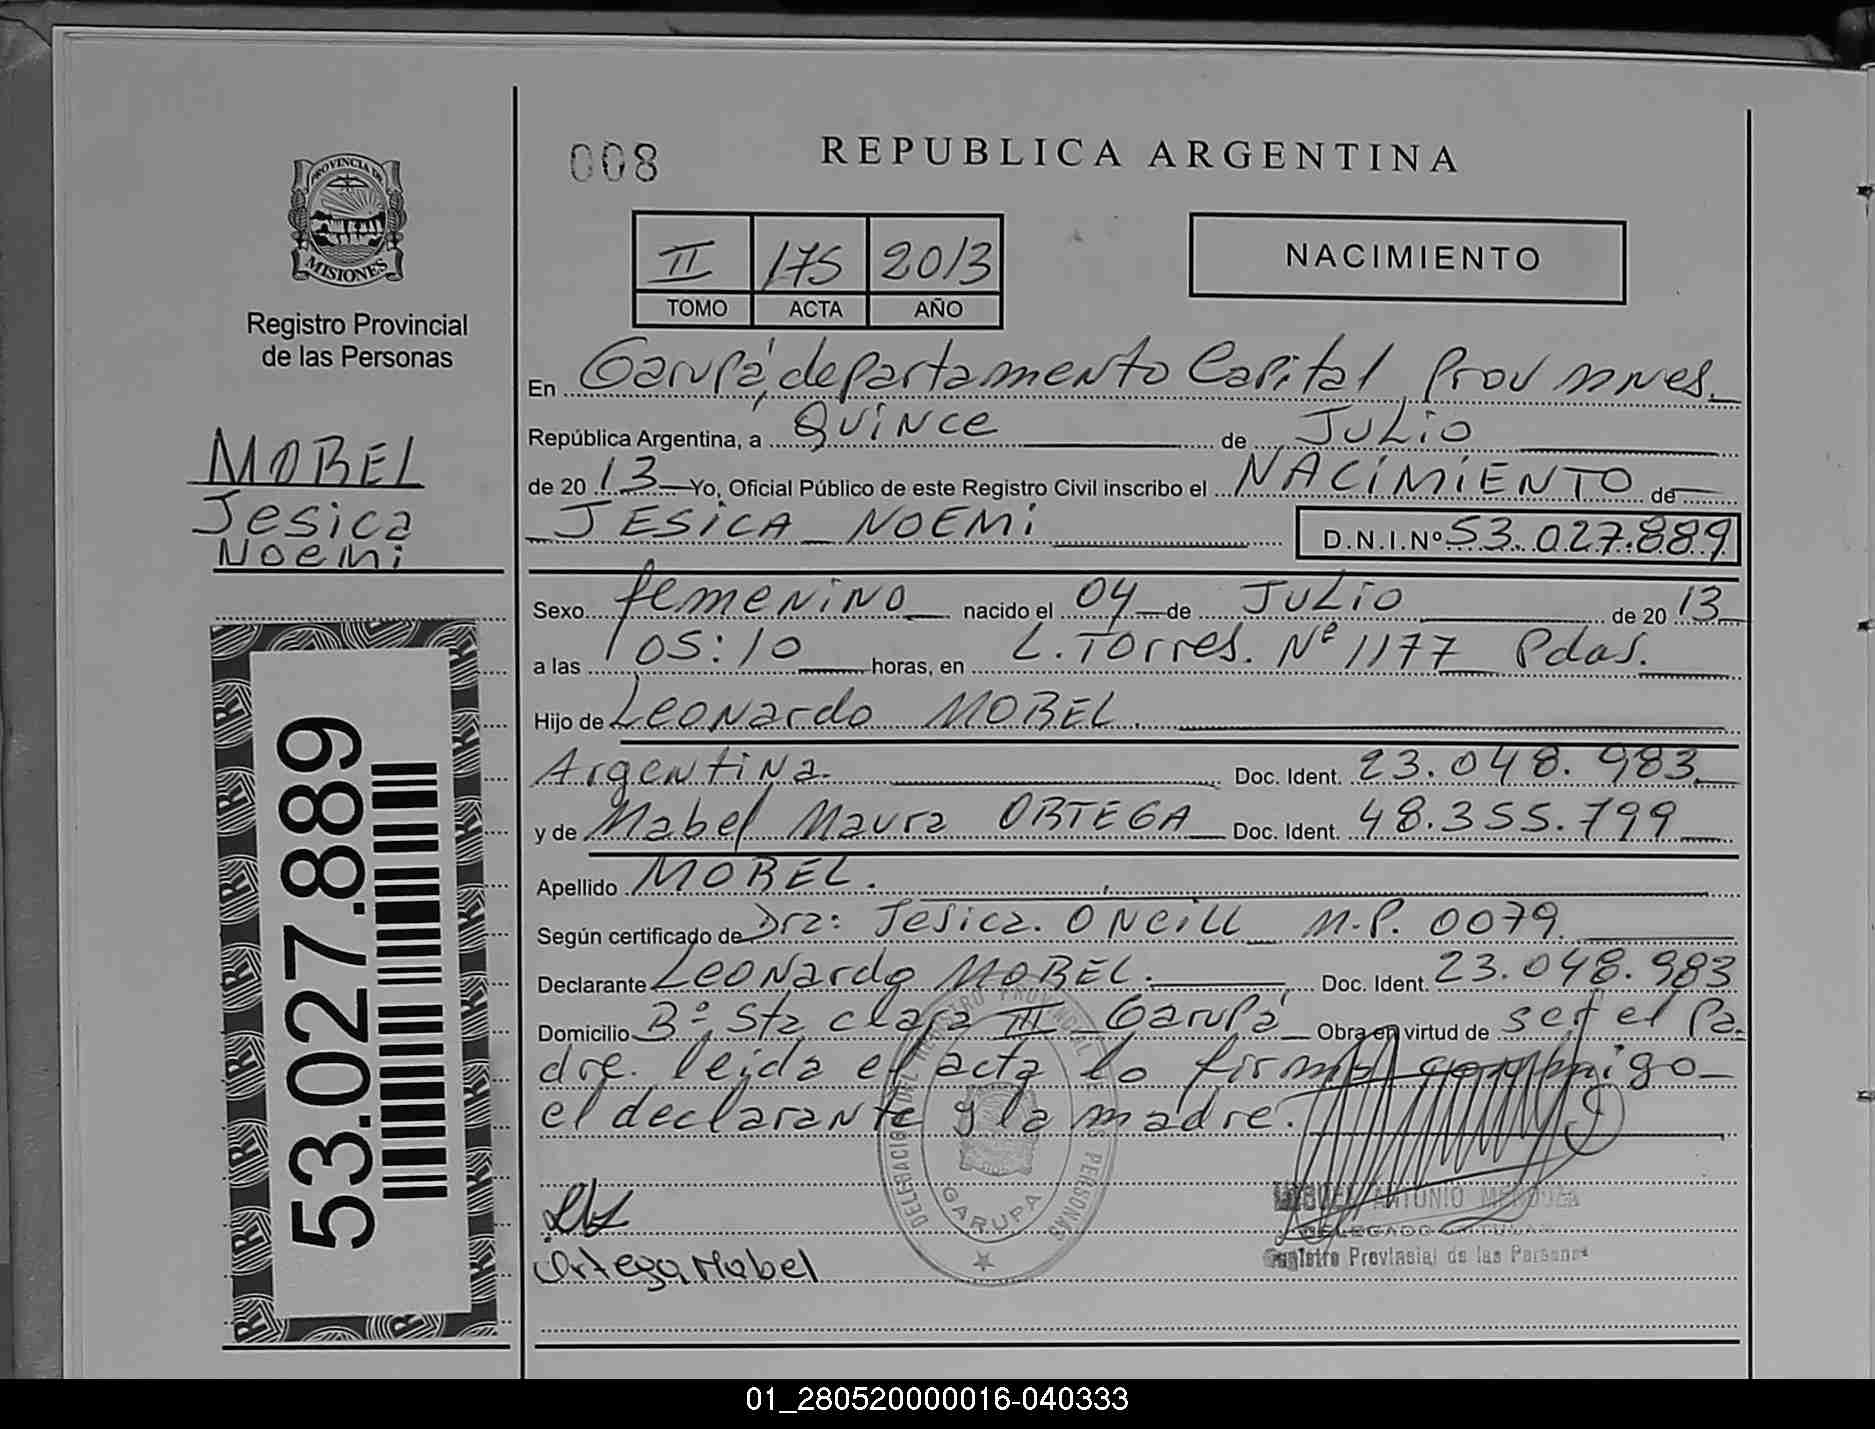 008
REPUBLICA ARGENTINA
PROVINCIA DE
MISIONES
Registro Provincial
de las Personas
II 175 2013
TOMO ACTA AÑO
NACIMIENTO
MOBEL
Jesica
Noemi
53.027.889
En Garupá, departamento Capital Prov mnes.
República Argentina, a Quince de Julio
de 20 13 Yo, Oficial Público de este Registro Civil inscribo el NACIMIENTO de
JESICA NOEMI D.N.I.Nº 53.027.889
Sexo femenino nacido el 04 de Julio de 20 13
a las 05:10 horas, en L. Torres. Nº 1177 Pdas.
Hijo de Leonardo MOBEL.
Argentina. Doc. Ident. 23.048.983
y de Mabel Maura ORTEGA Doc. Ident. 48.355.799
Apellido MOBEL.
Según certificado de Dra: Jesica. ONeill M.P. 0079
Declarante Leonardo MOBEL. Doc. Ident. 23.048.983
Domicilio Bº Sta clara III Garupá Obra en virtud de ser el Pa-
dre. leida el acta lo firma conmigo
el declarante y la madre.
DELEGACION DEL REGISTRO PROVINCIAL DE LAS PERSONAS
GARUPA
Ortega Mabel
ANTONIO MENDOZA
DELEGADO TITULAR
Registro Provincial de las Personas
01_280520000016-040333